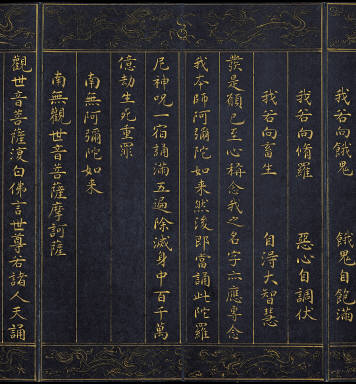 我若向餓鬼　餓鬼自飽滿
我若向脩羅　惡心自調伏
我若向畜生　自得大智慧
發是願已至心稱念我之名字亦應專念
我本師阿彌陀如來然後即當誦此陀羅
尼神呪一宿誦滿五遍除滅身中百千萬
億劫生死重罪
南無阿彌陀如來
南無觀世音菩薩摩訶薩
觀世音菩薩復白佛言世尊若諸人天誦